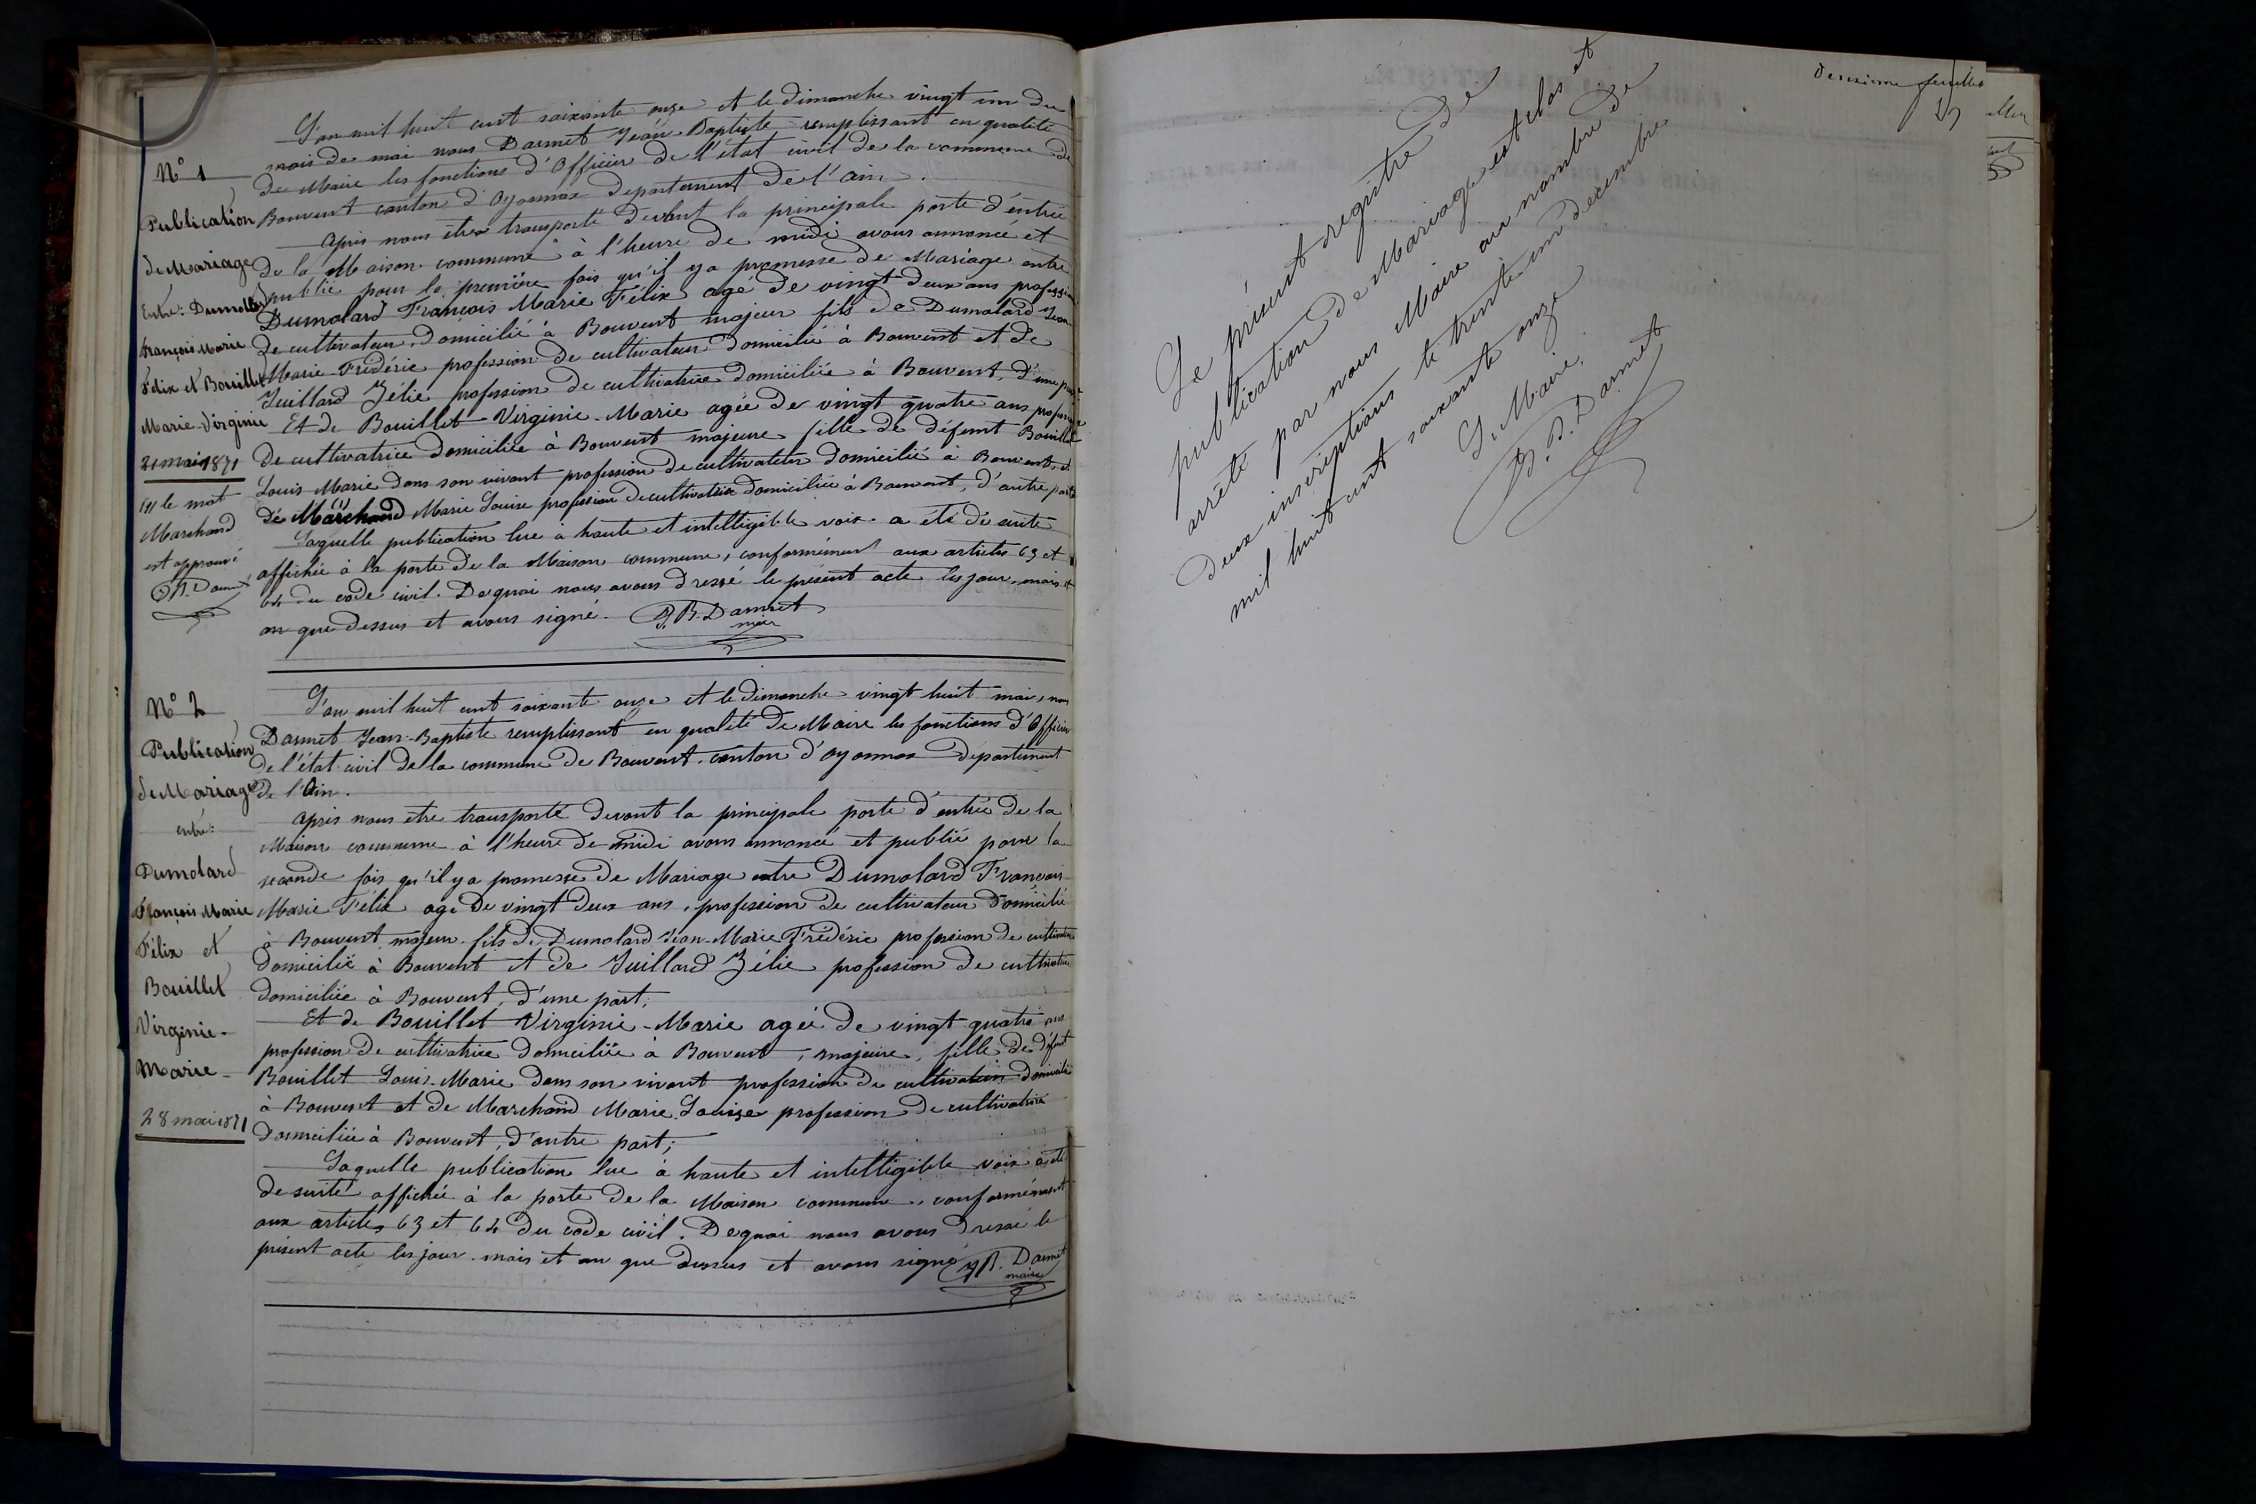 N° 1
Publication
de Mariage
Entre: Dumollard
françois Marie
Félix et Bouillet
Marie-Virginie
21 mai 1871
(1) le mot
Marchand
est approuvé
J.B. Darmet
L'an mil huit cent soixante onze et le dimanche vingt un du
mois de mai nous Darmet Jean-Baptiste remplissant en qualité
de Maire les fonctions d'Officier de l'état civil de la commune de
Bouvent canton d'Oyonnax departement de l'ain.
Après nous être transporté devant la principale porte d'entrée
de la Maison commune à l'heure de midi avons annoncé et
publié pour la première fois qu'il y a promesse de Mariage entre
Dumolard François Marie Félix agé de vingt deux ans profession
de cultivateur, domicilié à Bouvent majeur fils de Dumolard Jean
Marie-Frédéric profession de cultivateur domicilié à Bouvent et de
Juillard Zélie profession de cultivatrice domiciliée à Bouvent, d'une part
Et de Bouillet-Virginie-Marie agée de vingt quatre ans profession
de cultivatrice domiciliée à Bouvent majeure fille de défunt Bouillet
Louis Marie dans son vivant profession de cultivateur domicilié à Bouvent, et
de Marchand (1) Marie Louise profession de cultivatrice domiciliée à Bouvent, d'autre part
Laquelle publication lue à haute et intelligible voix a été de suite
affichée à la porte de la Maison commune, conformément aux articles 63 et
64 du code civil. De quoi nous avons dressé le présent acte les jour, mois et
an que dessus et avons signé. J.B. Darmet
maire
N° 2
Publication
de Mariage
entre:
Dumolard
François Marie
Félix et
Bouillet
Virginie-
Marie-
28 mai 1871
L'an mil huit cent soixante onze et le dimanche vingt huit mai, nous
Darmet Jean-Baptiste remplissant en qualité de Maire les fonctions d'Officier
de l'état civil de la commune de Bouvent canton d'oyonnax departement
de l'Ain.
Après nous etre transporté devant la principale porte d'entrée de la
Maison commune à l'heure de midi avons annoncé et publié pour la
seconde fois qu'il y a promesse de Mariage entre Dumolard François
Marie Félix agé de vingt deux ans, profession de cultivateur domicilié
à Bouvent, majeur fils de Dumolard Jean-Marie Frédéric profession de cultivateur
domicilié à Bouvent et de Juillard Zélie profession de cultivatrice
domiciliée à Bouvent, d'une part;
Et de Bouillet Virginie-Marie agée de vingt quatre ans
profession de cultivatrice domiciliée à Bouvent, majeure, fille de défunt
Bouillet Louis-Marie dans son vivant profession de cultivateur domicilié
à Bouvent et de Marchand Marie Louise profession de cultivatrice
domiciliée à Bouvent, d'autre part;
Laquelle publication lue à haute et intelligible voix a été
de suite affichée à la porte de la Maison commune, conformément
aux articles 63 et 64 du code civil. De quoi nous avons dressé le
présent acte les jour mois et an que dessus et avons signé J.B. Darmet
maire
Le présent régistre de
publication de Mariage est clos et
arrêté par nous Maire au nombre de
deux inscriptions le trente un décembre
mil huit cent soixante onze
Le Maire,
J.B. Darmet